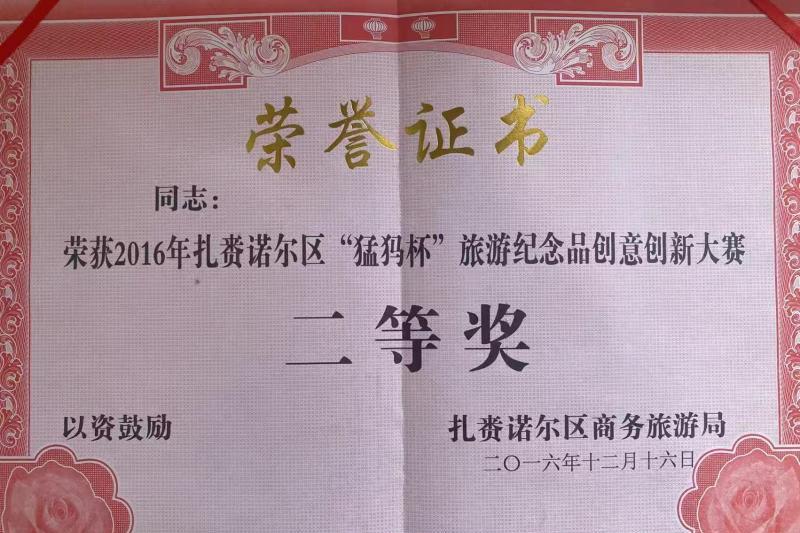 荣誉证书
同志：
荣获2016年扎赉诺尔区“猛犸杯”旅游纪念品创意创新大赛
二等奖
以资鼓励
扎赉诺尔区商务旅游局
二〇一六年十二月十六日